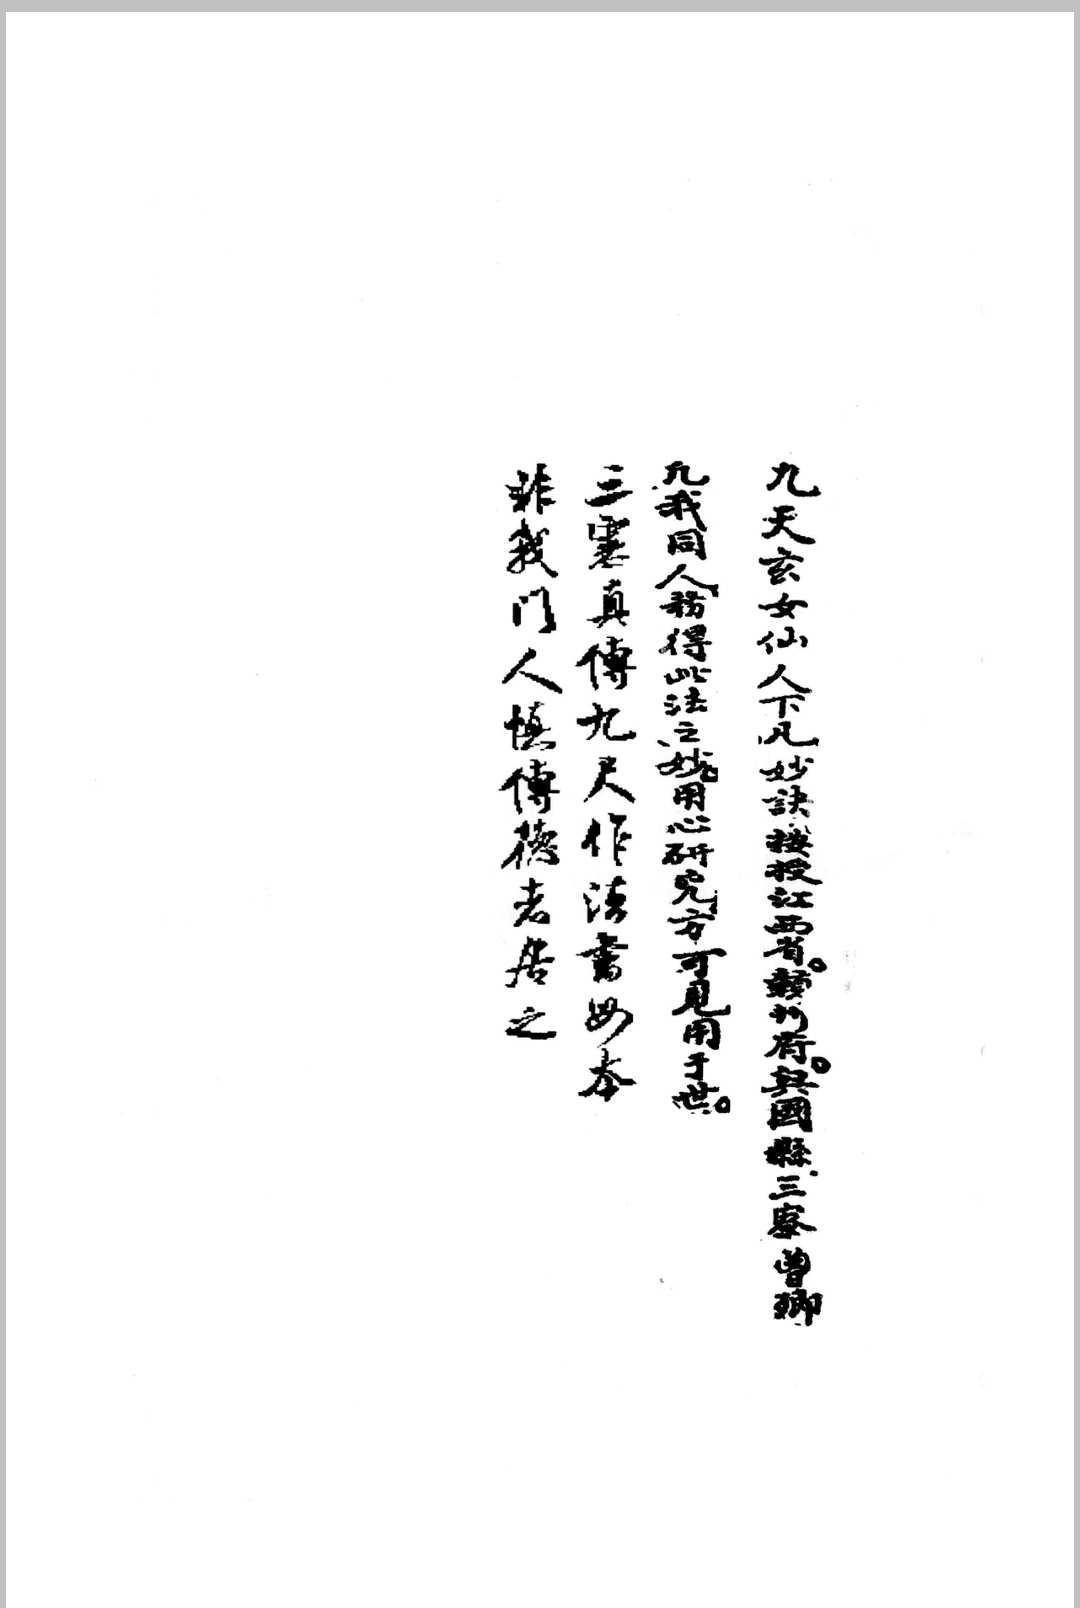 九天玄女仙人下凡妙訣接授江西省。贛州府。興國縣三寮曾鄉
凡我同人務得此法之妙。用心研究方可見用于世。
三寮真傳九尺作法書
非我門人慎傳德者居之